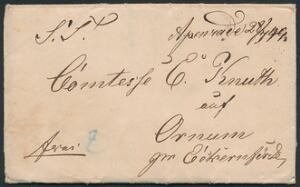 S. T.
Apenrade
Comtesse E. Knuth
auf
Ornum
pr Eckernförde
frei